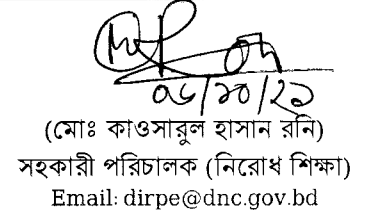 ০৬/১০/২১
(মোঃ কাওসারুল হাসান রনি)
সহকারী পরিচালক (নিরোধ শিক্ষা)
Email: dirpe@dnc.gov.bd